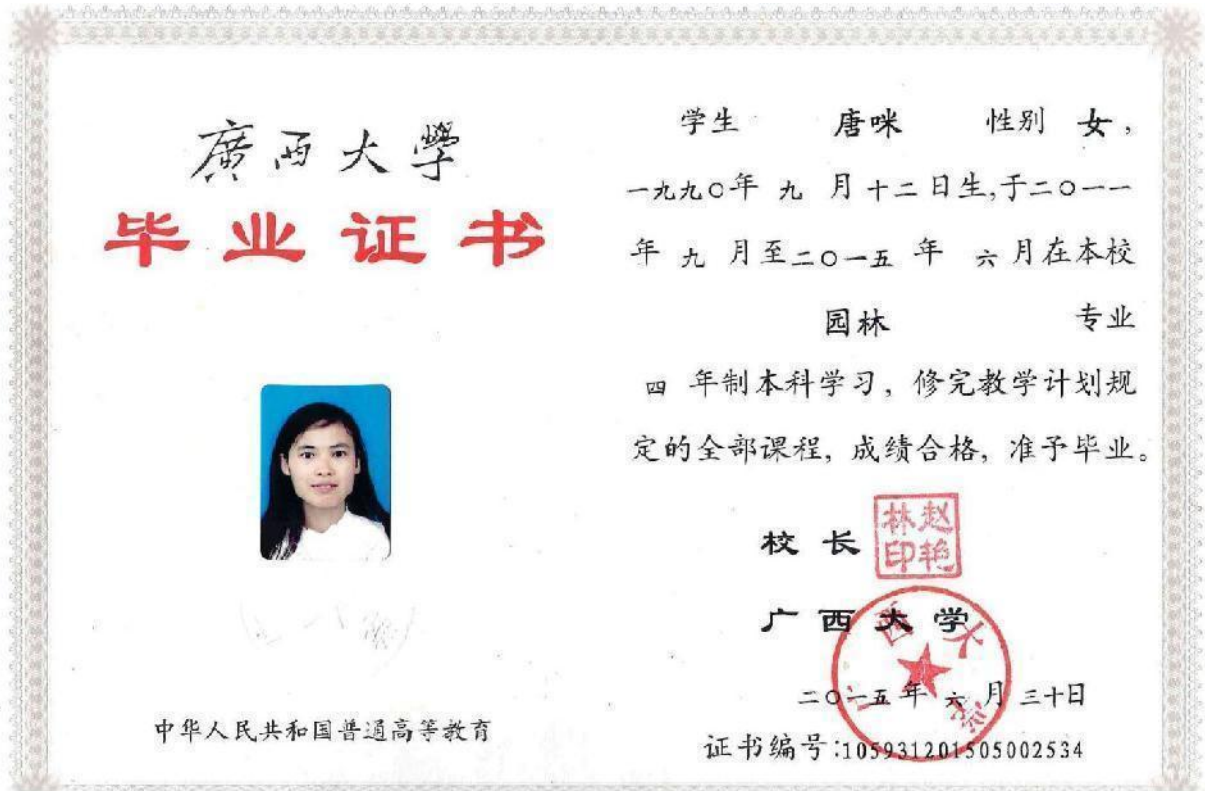 廣西大學
毕业证书
中华人民共和国普通高等教育
学生 唐咪 性别 女,
一九九〇年 九 月十二日生,于二〇一一
年 九 月至二〇一五 年 六月在本校
园林 专业
四 年制本科学习, 修完教学计划规
定的全部课程, 成绩合格, 准予毕业。
校长
赵艳林印
广西大学
广西大学
二〇一五年 六 月三十日
证书编号:105931201505002534